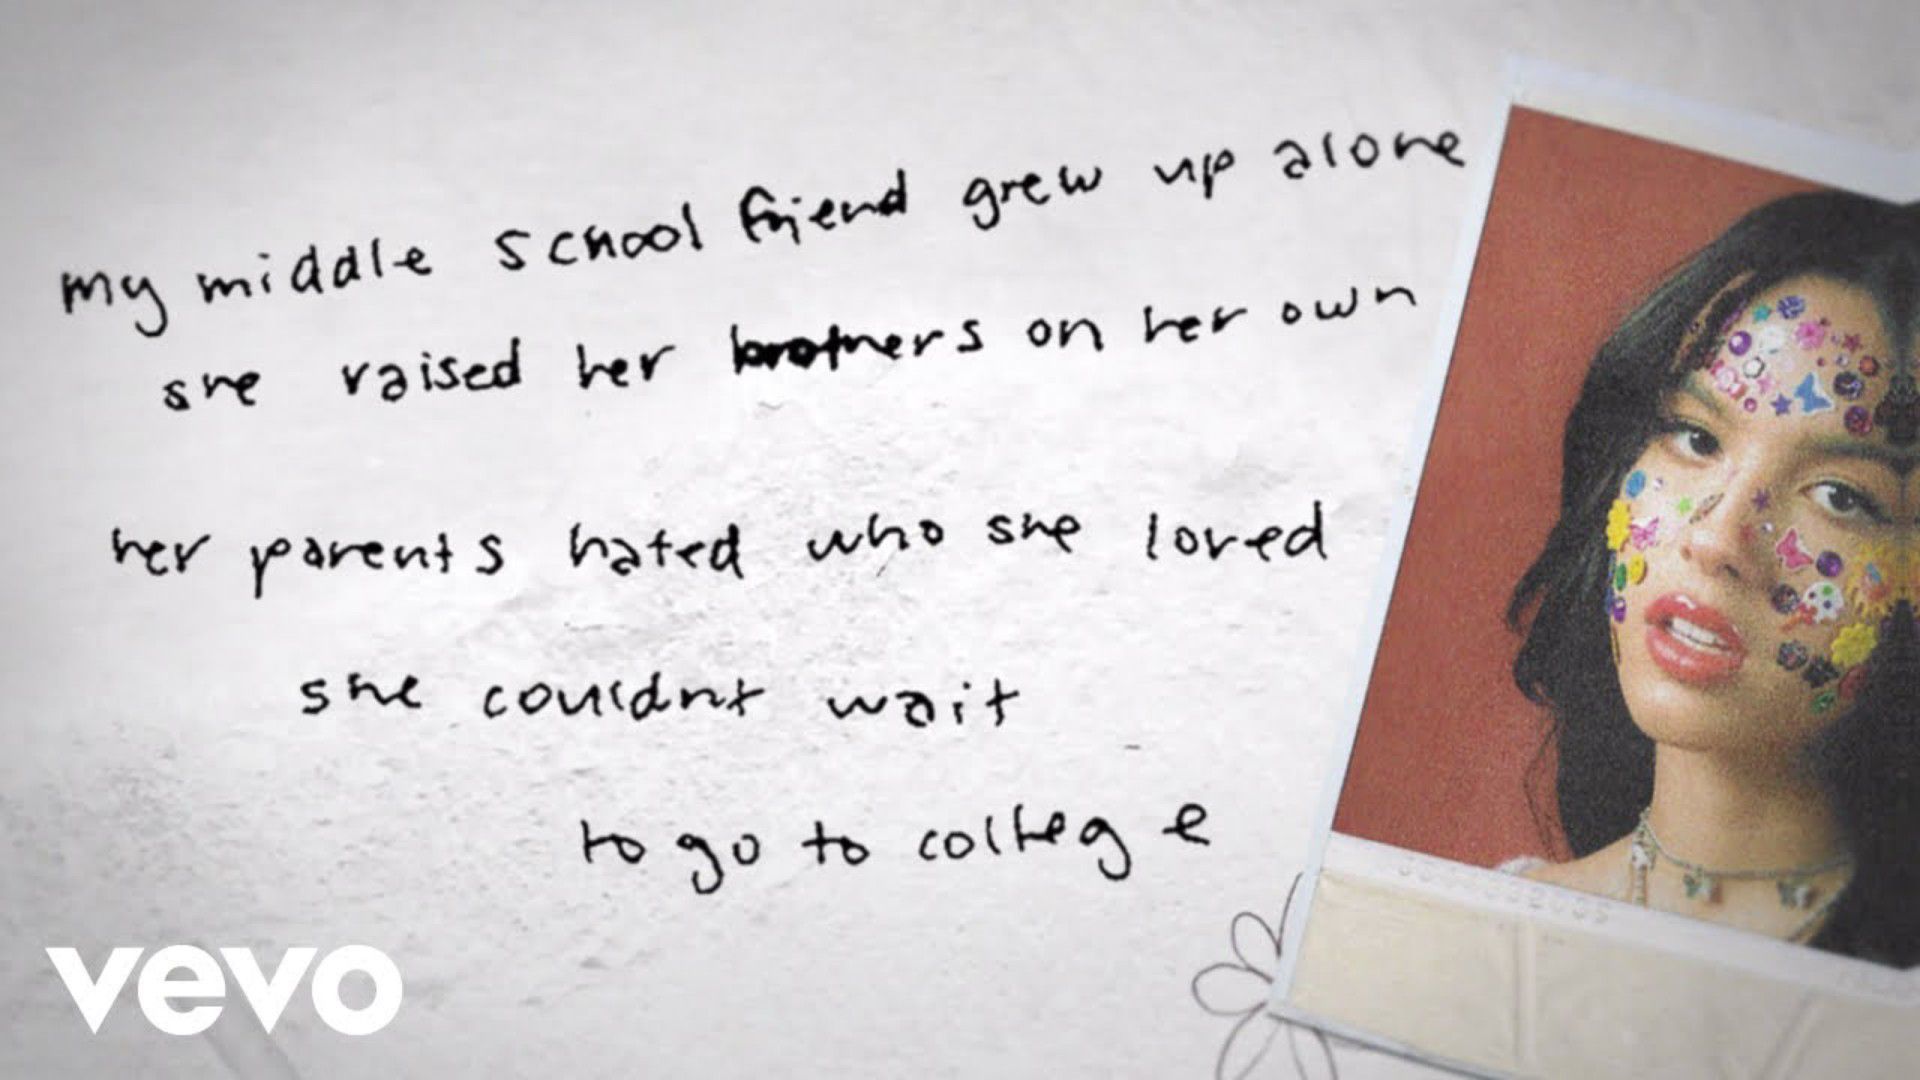 my middle school friend grew up alone
she raised her brothers on her own
her parents hated who she loved
she couldnt wait
to go to college
vevo